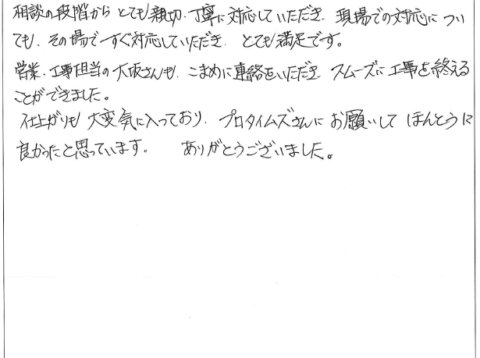 相談の段階からとても親切、丁寧に対応していただき、現場での対応につい
ても、その場ですぐ対応していただき、とても満足です。
営業、工事担当の大阪さんも、こまめに連絡をいただき、スムーズに工事を終える
ことができました。
仕上がりも大変気に入っており、プロタイムズさんにお願いしてほんとうに
良かったと思っています。 ありがとうございました。